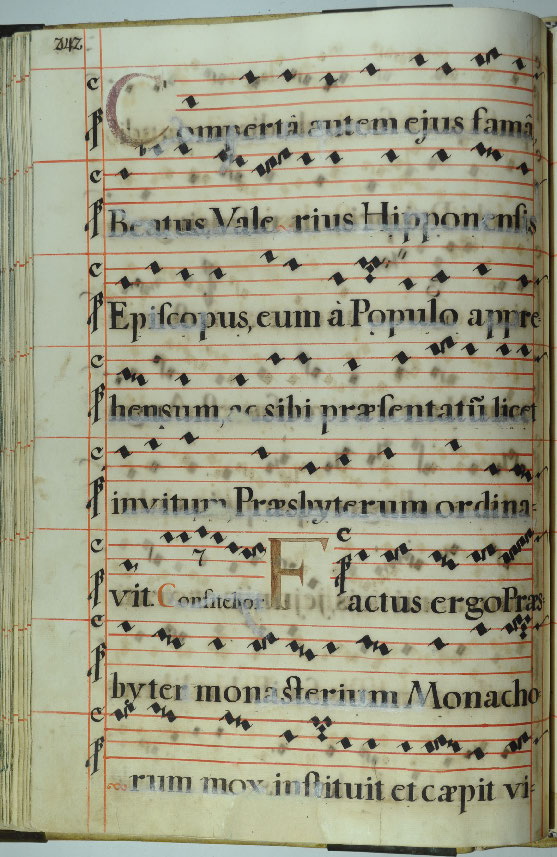 242
Compertâ autem ejus famâ,
Beatus Valerius Hipponenſis
Epiſcopus, eum à Populo appre
henſum, ac sibi præſentatũ licet
invitum, Præsbyterum ordina=
vit. Confitebor. Factus ergo Præs
byter monaſterium Monacho
rum mox inſtituit et cæpit vi=